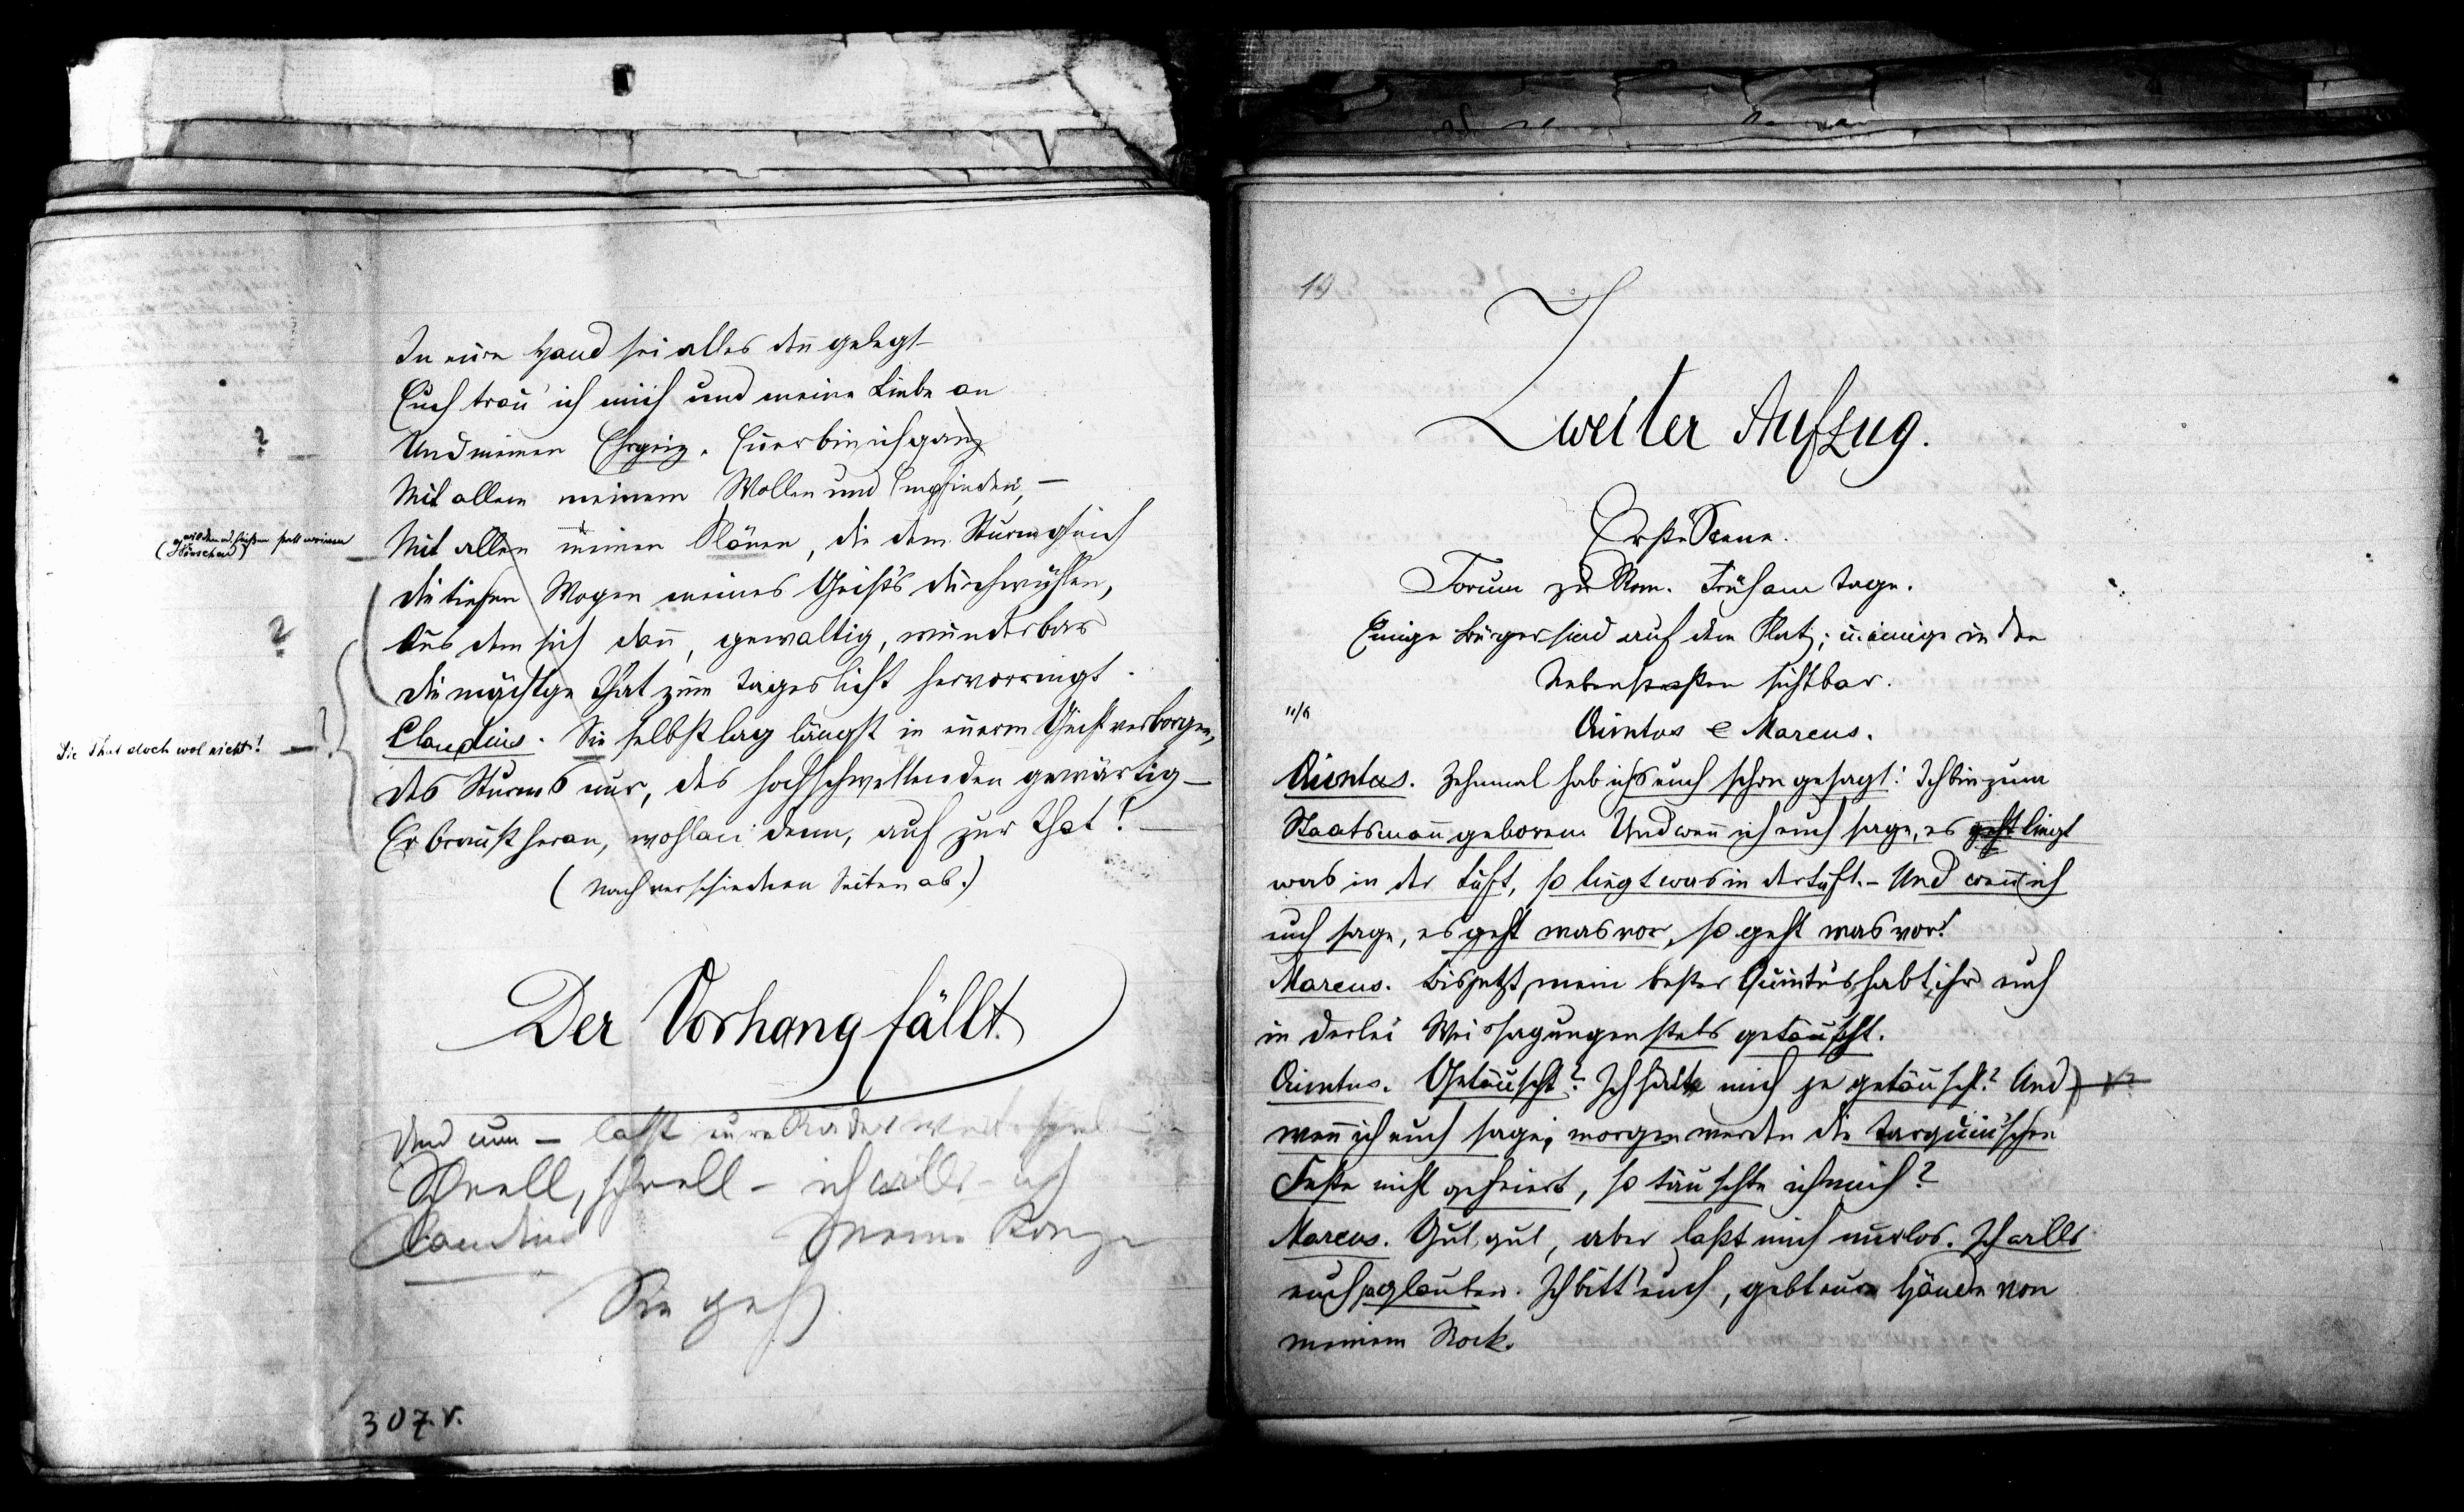 In eure Hand sei alles den̅ gelegt
Euch trau' ich mich und meine Liebe an
Und meinen Ehrgeiz. Euer bin ich ganz
Mit allem meinem Wollen und Empfinden, –
Mit allen meinen Plänen, die dem Sturm gleich
die tiefen Wogen meines Geist's durchwühlen,
Aus dem sich dan̅, gewaltig, wunderbar
die mächt'ge That zum Tageslicht hervorringt.
Die That doch wol nicht!
Claudius. Sie selbst lag längst in euerm Geist verborgen,
des Sturms nur, des hochschwellenden gewärtig –
Er braust heran, wohlan denn, auf zur That! –
(Nach verschiednen Seiten ab.)
Der Vorhang fällt.
Und nun – laßt eure Räder
Schnell, schnell – ich will's – ich
Claudius
Sie geht
307.v.
19
Zweiter Aufzug.
Erste Scene.
Forum zu Rom. Früh am Tage.
Einige Bürger sind auf dem Platz; einige in den
Nebenstraßen sichtbar.
Quintus & Marcus.
Quintus. Zehnmal hab ichs euch schon gesagt: Ich bin zum
Staatsman̅ geboren. Und wen̅ ich euch sage, es geht liegt
was in der Luft, so liegt was in der Luft. – Und wen̅ ich
euch sage, es geht was vor, so geht was vor!
Marcus. Bis jetzt, mein bester Quintus habt ihr euch
in derlei Weissagungen stets getäuscht.
Quintus. Getäuscht? Ich hätte mich je getäuscht? Und
wen̅ ich euch sage, morgen werden die tarquin'schen
Feste nicht gefeiert, so täuschte ich mich?
Marcus. Gut, gut, aber laßt mich nur los. Ich wills
euch ja glauben. Ich bitt' euch, gebt eure Hände von
meinem Rock.